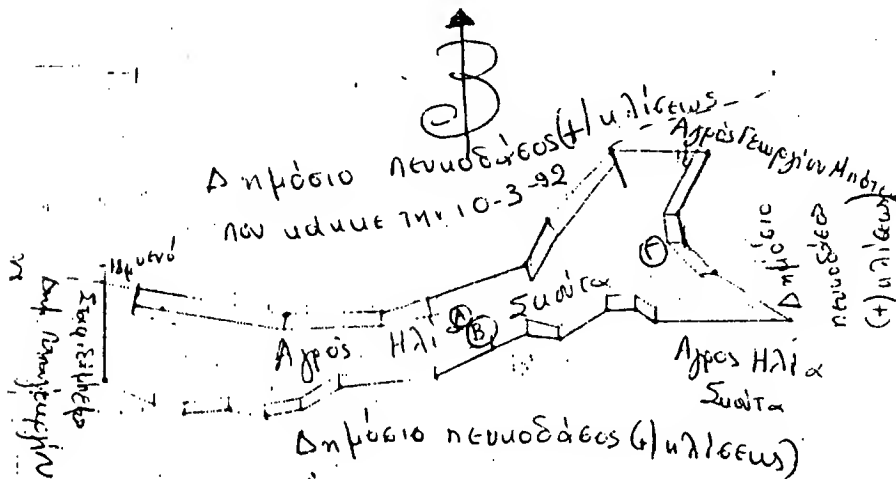 Β
Δημόσιο πευκοδάσος (+) κλίσεως
που κάηκε την 10-3-92
Αγρός Γεωργίου Μπότσ
Δημόσιο
πευκοδάσο
(+) κλίσεως
Γ
Α
Β
Αγρός Ηλία Σκούτα
Αγρός Ηλία
Σκούτα
Δημόσιο πευκοδάσος (+) κλίσεως)